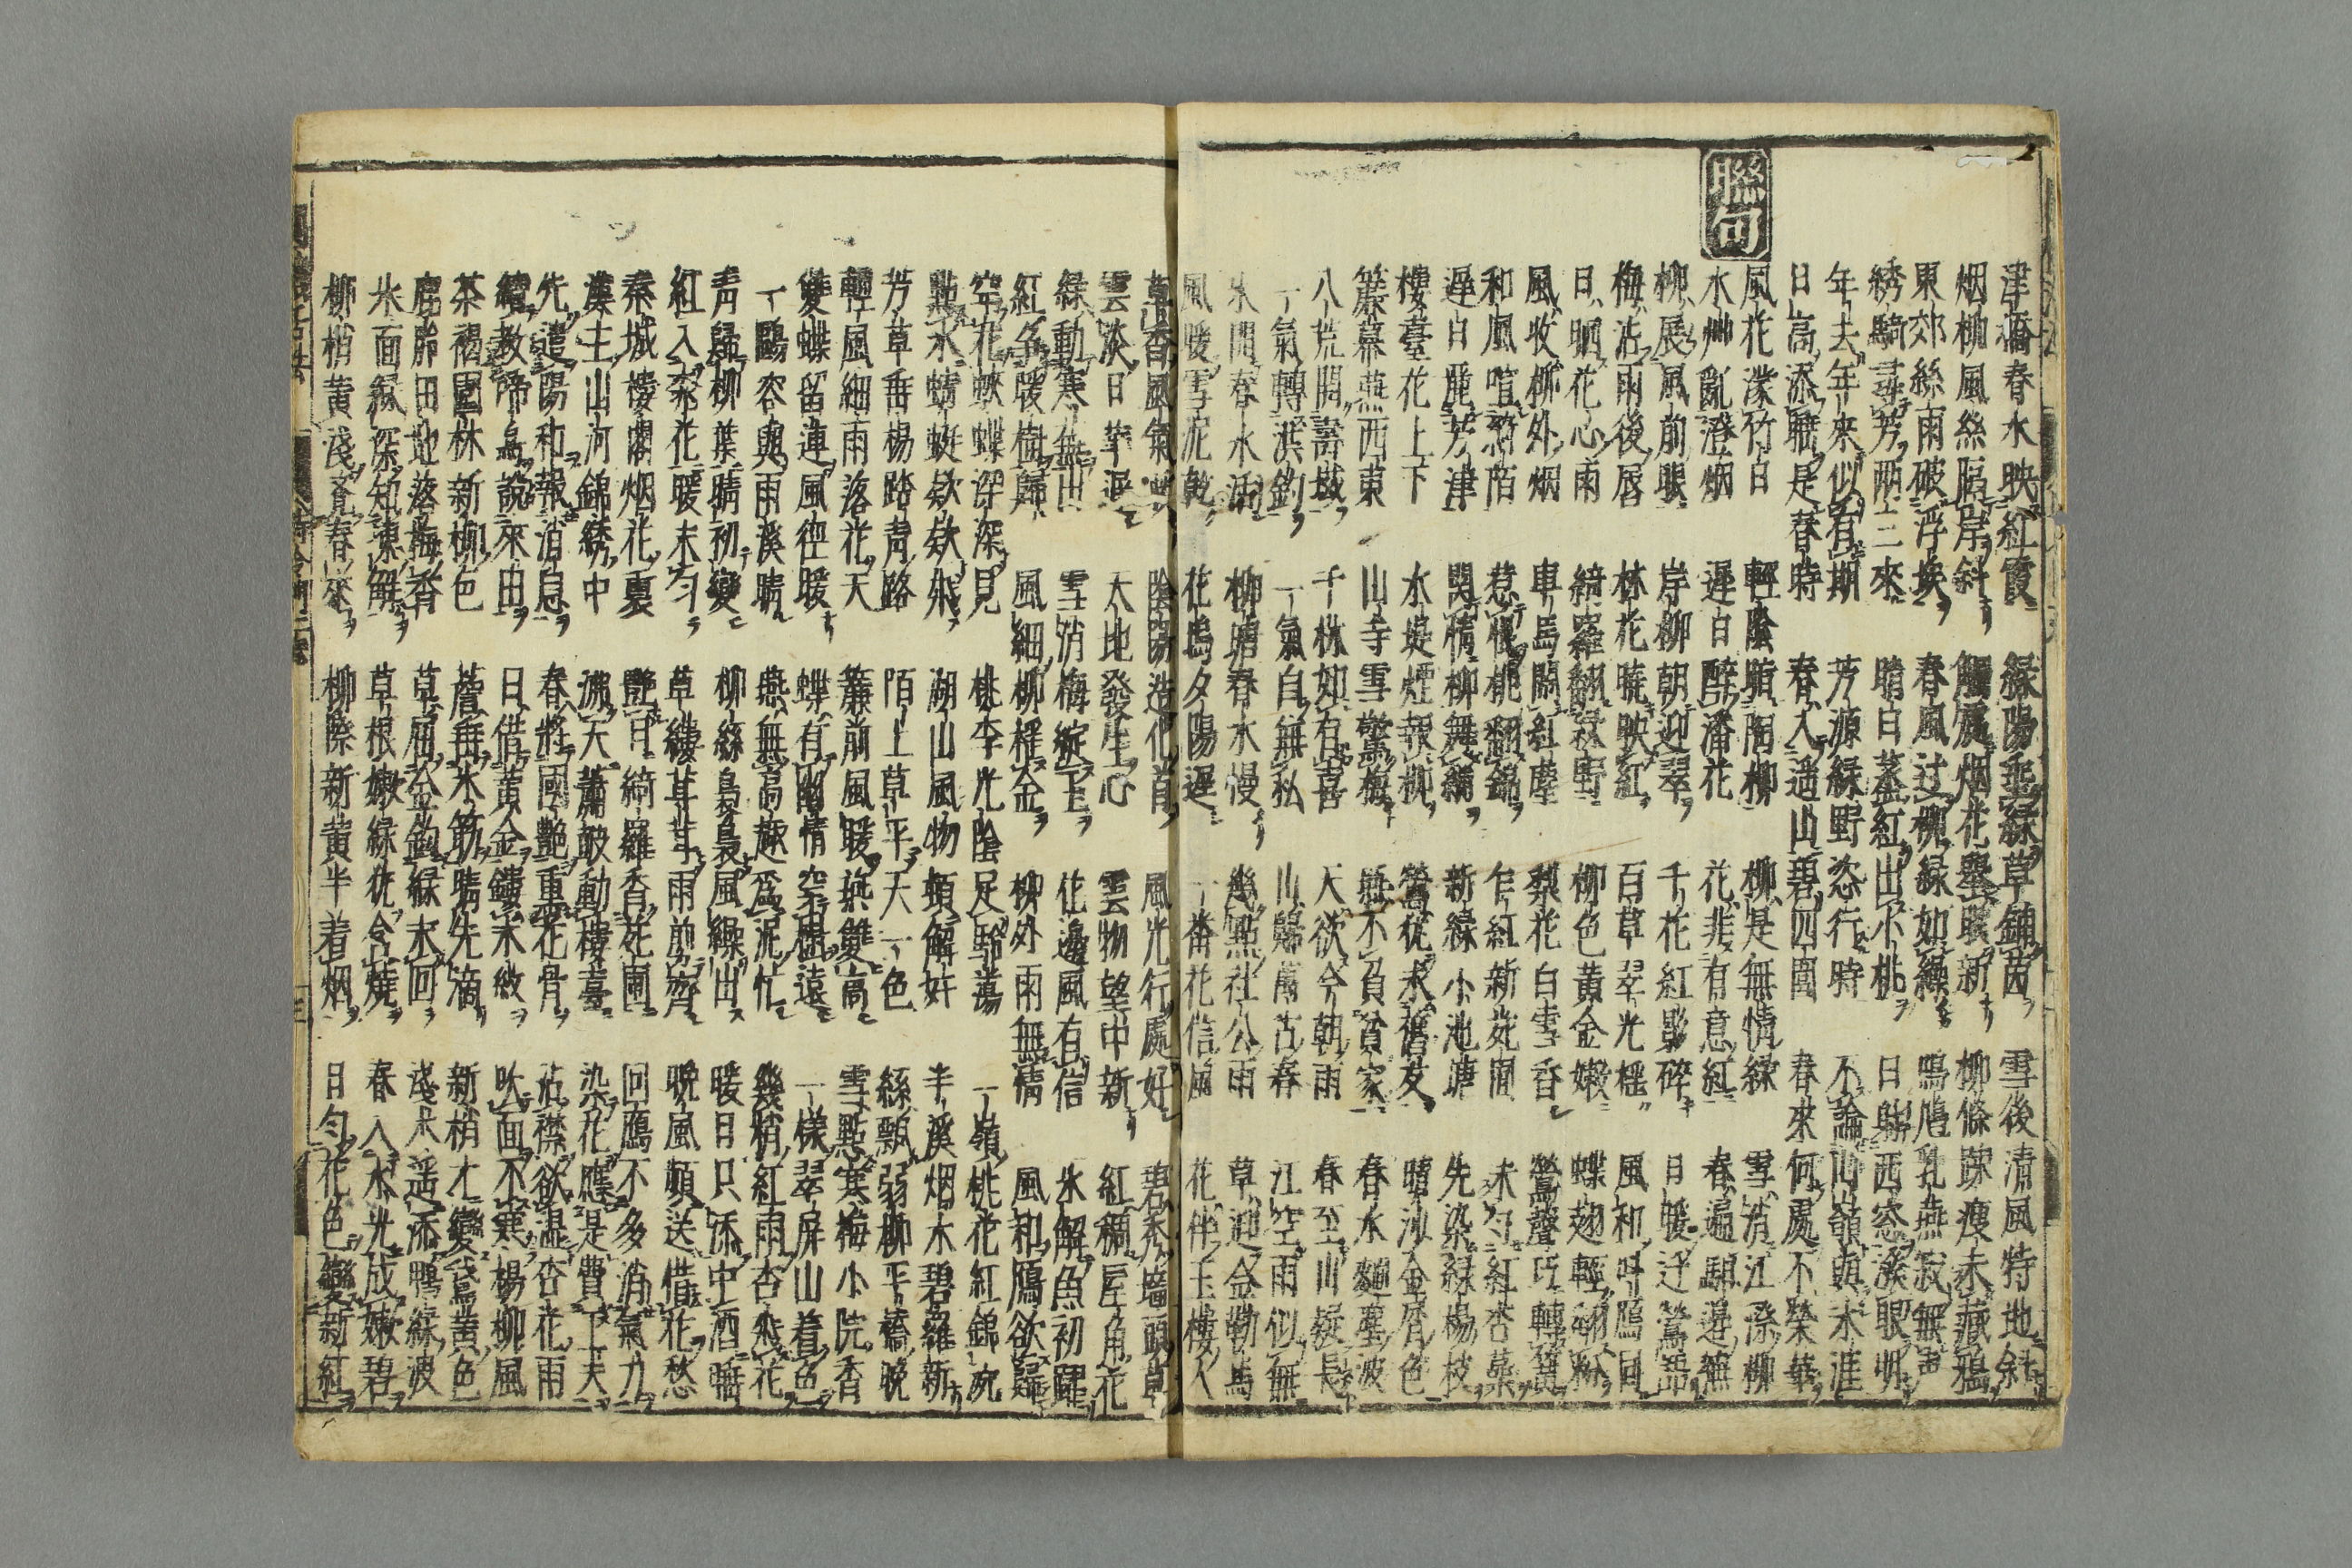 津橋春水映紅霞 緑陽垂緑草鋪茵 雪後清風特地斜
烟柳風絲臨岸斜 觸處烟花墨眼新 柳條踈痩未藏鴉
東郊絲雨破浮埃 春風过柳緑如繰 鳴鳩乳燕寂無声
綉騎尋芳两三來 晴日蒸紅出小桃 日射西窓潑眼明
年去年來似有期 芳源緑野恣行時 不論山嶺與水涯
日高添睡是春時 春入遥山碧四圍 春來何處不榮華
聯句
風花濛竹日 輕陰暗陌柳 柳是無情緑 雪消江際柳
水艸亂澄烟 遲日醉潘花 花非有意紅 春遍驛邉蕪
柳展風前眼 岸柳朝迎翠 千花紅影碎 日暖迂鶯語
梅沾雨後唇 林花暁映紅 百草翠光楿 風和呼鴈回
日晒花心雨 綺羅翻緑野 柳色黄金嫩 蝶翅輕翻粉
風收柳外烟 車馬閙紅塵 梨花白雪香 鶯聲巧轉簧
和風喧紫陌 惹襯桃翻錦 乍紅新苑間 未匀紅杏蘂
遲日麗芳津 関情柳舞綃 新緑小池塘 先染緑楊枝
樓臺花上下 水堤煙報柳 鶯從求舊友 晴沙金屑色
簾幕燕西東 山寺雪驚梅 燕不負貧家 春水麹塵波
八荒開壽域 千林如有喜 天欲今朝雨 春至山疑長
一氣轉洪鈞 一氣自無私 山歸萬古春 江空雨似無
氷開春水涸 柳塘春水慢 幾點社公雨 草迎金勒馬
風暖雪泥乾 花塢夕陽遲 一番花信風 花伴玉樓人
草香風氣 陰陽造化育 風光行處好 碧秀墻頭草
雲淡日華 天地發生心 雲物望中新 紅稠屋角花
緑動寒無 雪消梅綻玉 花邉風有信 氷解魚初躍
紅爭暖樹歸 風細柳楿金 柳外雨無情 風和鴈欲歸
穿花蛺蝶深深見 桃李光陰足駘蕩 一嶺桃花紅錦浣
點水蜻蜓欵欵飛 湖山風物頓解妍 半溪烟水碧羅新
芳草垂楊踏青路 陌上草平天一色 絲飄弱柳平橋晩
輕風細雨落花天 簾前風暖燕雙高 雪點寒梅小院香
雙蝶留連風徑暖 蝶有幽情穿檻遠 一様翠屏山着色
一鷗容與雨溪晴 燕無高趣爲泥忙 幾梢紅雨杏飛花
青歸柳葉晴初變 柳絲裊裊風繰出 暖日只添中酒睡
紅入桃花暖未匀 草縷茸茸雨剪齊 晩風頻送借花愁
秦城樓閣烟花裏 艷日綺羅香苑圃 回鴈不多消氣力
漢主山河錦綉中 沸天蕭鼓動樓臺 染花應是費工夫
先遣陽和報消息 春將國艷重花骨 沾襟欲濕杏花雨
續教啼鳥說來由 日借黄金鏤未緻 吹面不寒楊柳風
茶褐園林新柳色 薝垂氷筯晴先滴 新梢才變鵞黄色
鹿胎田地落梅香 草屈金鈎緑未回 淺水遥添鴨緑波
氷面緑深知凍解 草根嫩緑犹含燒 春入水光成嫩碧
柳梢黄淺覺春來 柳際新黄半着烟 日匀花色變新紅